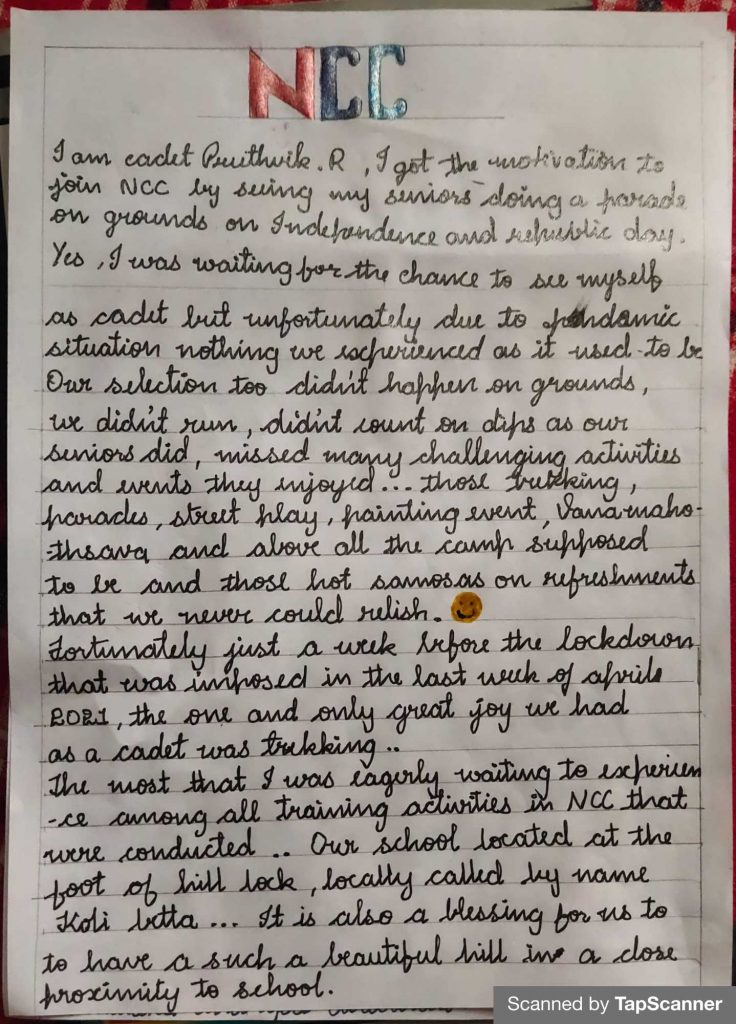 NCC
I am cadet Pruthvik.R , I got the motivation to
join NCC by seeing my seniors doing a parade
on grounds on Independence and republic day.
Yes , I was waiting for the chance to see myself
as cadet but unfortunately due to pandamic
situation nothing we experienced as it used to be
Our selection too didn't happen on grounds,
we didn't run, didn't count on dips as our
seniors did, missed many challenging activities
and events they enjoyed... those trekking,
parades, street play, painting event, Vanamaho-
-thsava and above all the camp supposed
to be and those hot samosas on refreshments
that we never could relish.
Fortunately just a week before the lockdown
that was imposed in the last week of aprile
2021, the one and only great joy we had
as a cadet was trekking..
The most that I was eagerly waiting to experien
-ce among all training activities in NCC that
were conducted .. Our school located at the
foot of hill lock, locally called by name
Koli betta ... It is also a blessing for us to
to have a such a beautiful hill in a close
proximity to school.
Scanned by TapScanner